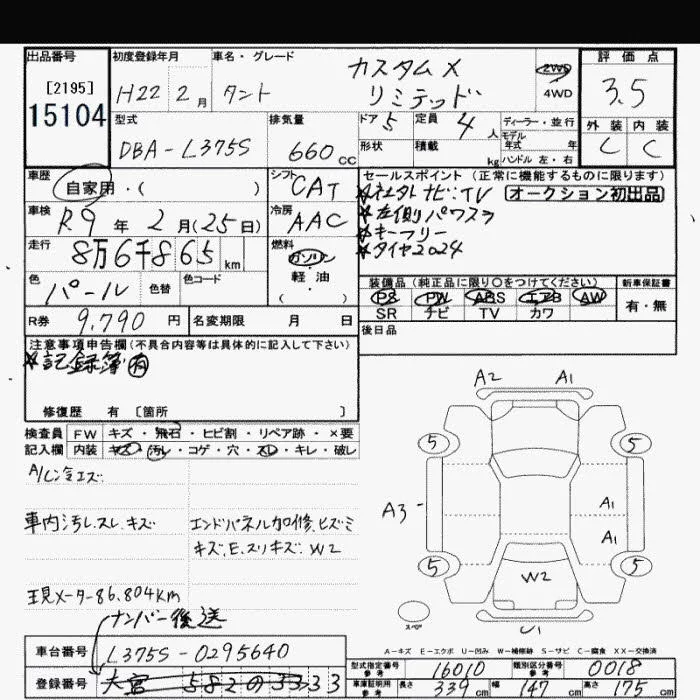 出品番号
[2195]
15104
初度登録年月
H22 2月
車名・グレード
タント
カスタムX
リミテッド
2WD
4WD
評価点
3.5
外装 内装
C C
型式
DBA-L375S
排気量
660cc
ドア 5
定員 4人
形状
積載 kg
ディーラー・並行
モデル年式 年
ハンドル 左・右
車歴
自家用・( )
シフト
CAT
車検
R9年2月(25日)
冷房
AAC
走行
8万6千865km
燃料
ガソリン
軽・油
( )
色
パール
色替
色コード
R券
9,790円
名変期限 月 日
セールスポイント(正常に機能するものに限ります)
*社外ナビ:TV
オークション初出品
*左側パワスラ
*キーフリー
*タイヤ2024
装備品(純正品に限り○をつけてください)
新車保証書
PS PW ABS エアB AW
SR ナビ TV カワ
有・無
後日品
注意事項申告欄(不具合内容等は具体的に記入して下さい)
*記録簿有
修復歴 有 [箇所 ]
検査員記入欄
FW キズ・飛石・ヒビ割・リペア跡・×要
内装 キズ・汚レ・コゲ・穴・スレ・キレ・破レ
車内汚レ.スレ.キズ
キズ.E.スリキズ.W2
現メーター86.804km
ナンバー後送
A2 A1
5 5
A3
A1
A1
5 5
W2
スペア
U1
A-キズ E-エクボ U-凹み W-補修跡 S-サビ C-腐食 XX-交換済
車台番号
L375S-0295640
登録番号
大宮 582 の 3333
型式指定番号 参考
16010
類別区分番号 参考
0018
車庫証明用 参考
長さ 339cm 幅 147cm 高さ 175cm